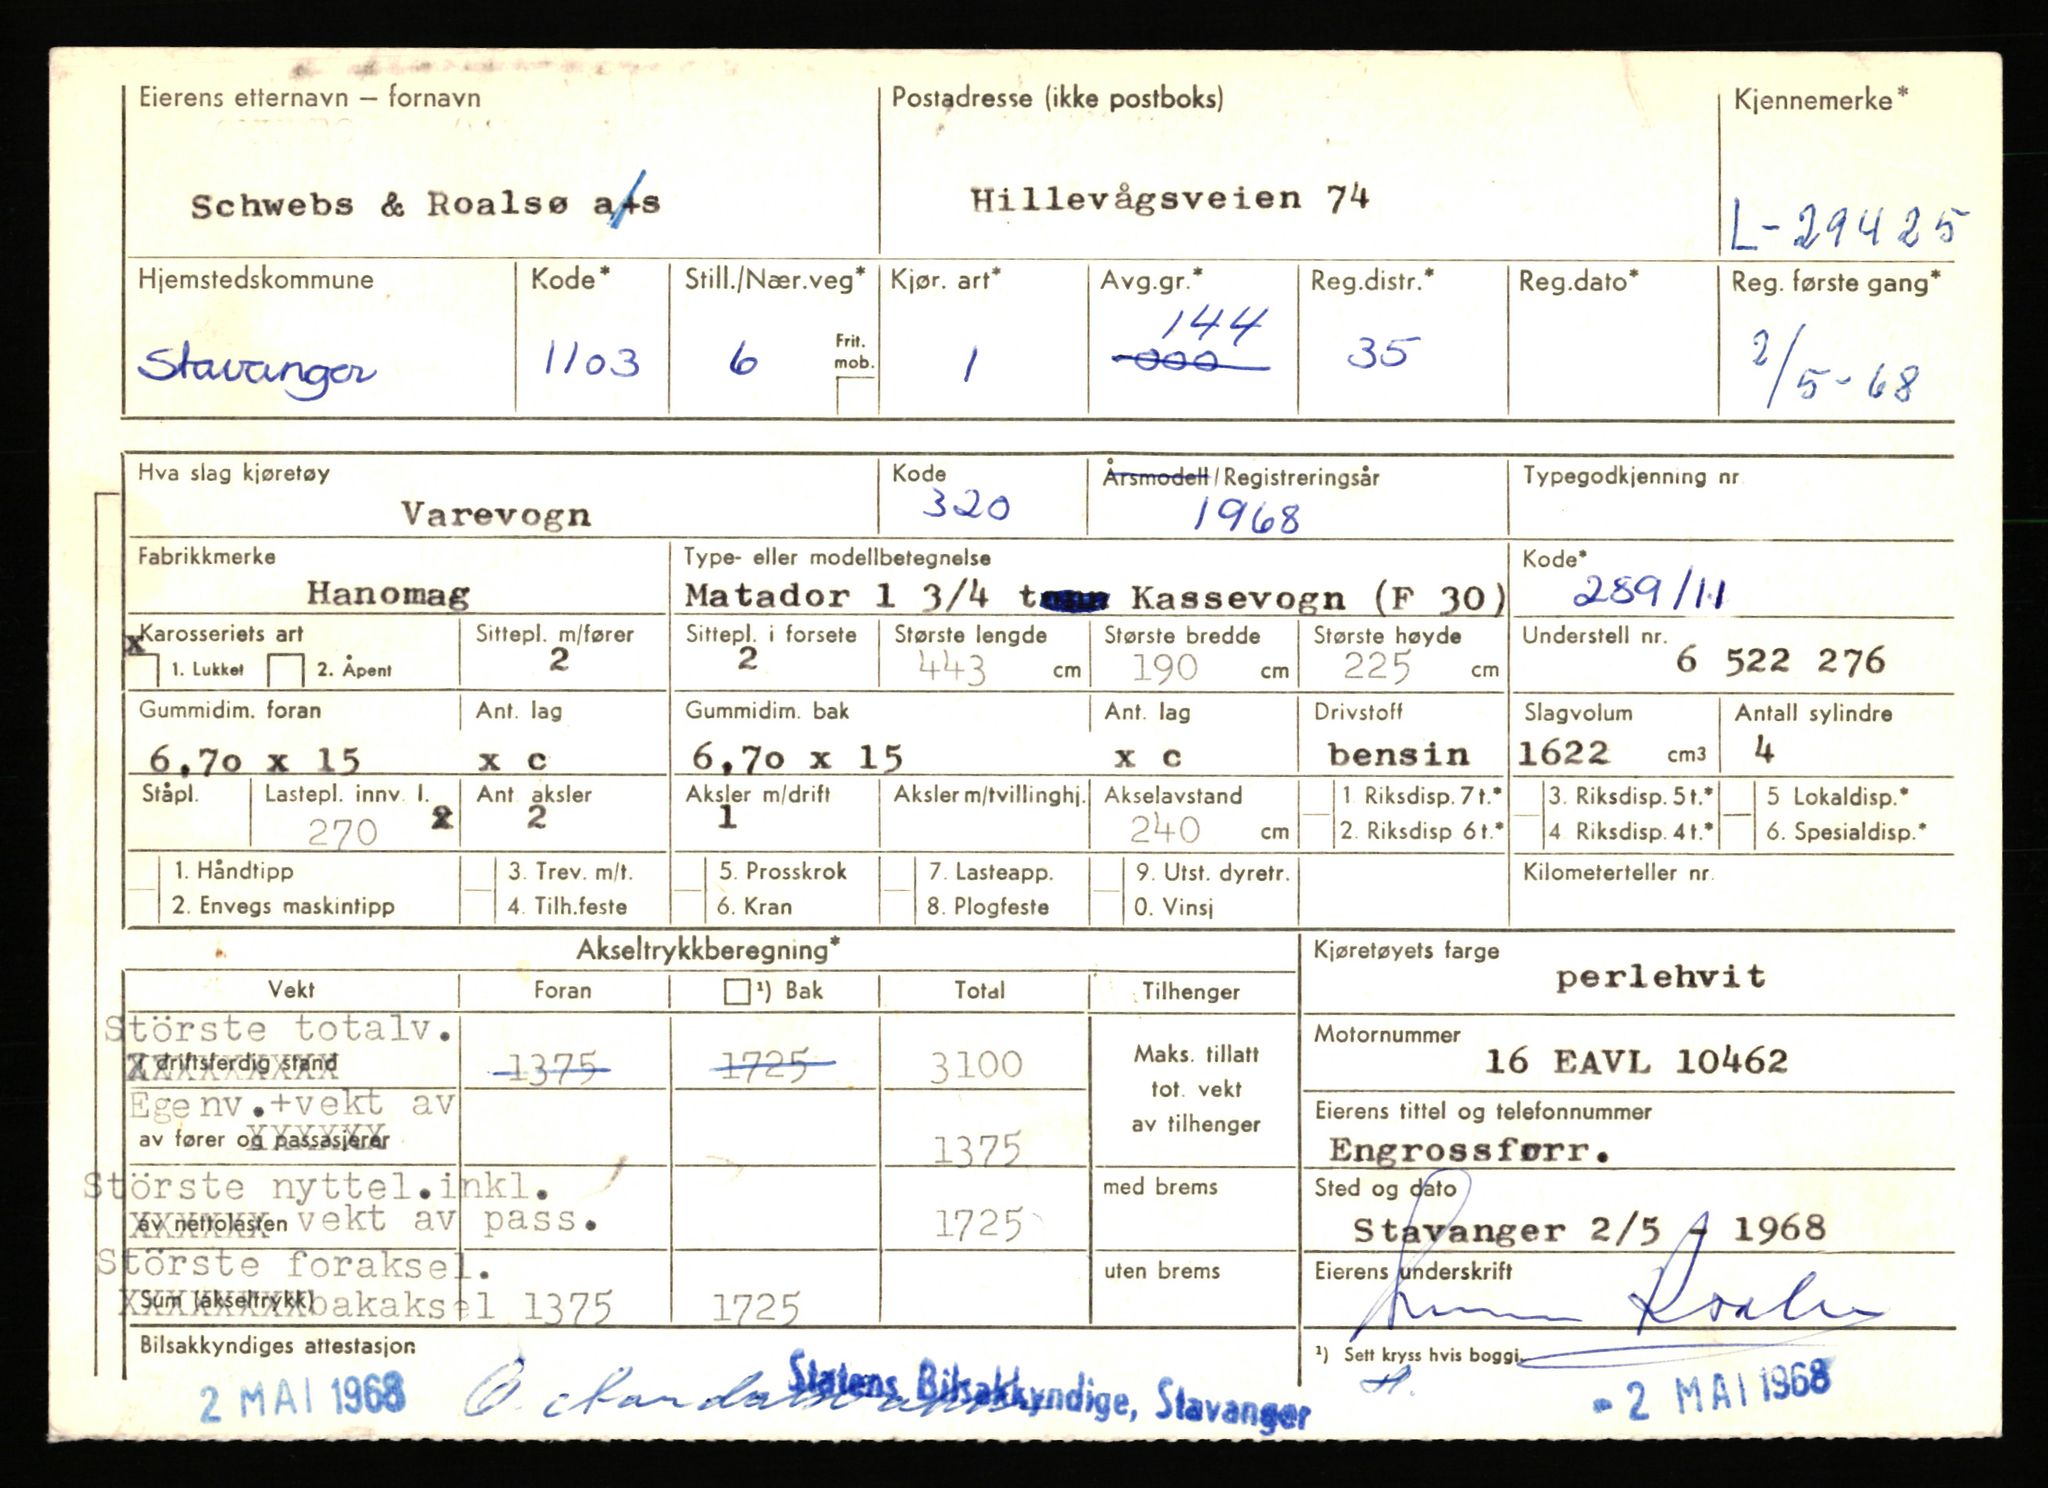 Eierens etternavn – fornavn
Postadresse (ikke postboks)
Kjennemerke*
Schwebs & Roalsø a/s
Hillevågsveien 74
L-29425
Hjemstedskommune
Kode*
Still./Nær.veg*
Kjør. art*
Avg.gr.*
Reg.distr.*
Reg.dato*
Reg. første gang*
Stavanger
1103
6
Frit. mob.
1
144
000
35
2/5-68
Hva slag kjøretøy
Kode
Årsmodell/Registreringsår
Typegodkjenning nr
Varevogn
320
1968
Fabrikkmerke
Type- eller modellbetegnelse
Kode*
Hanomag
Matador 1 3/4 tonn Kassevogn (F 30)
289/11
x
Karosseriets art
Sittepl. m/fører
Sittepl. i forsete
Største lengde
Største bredde
Største høyde
Understell nr.
1. Lukket
2. Åpent
2
2
443 cm
190 cm
225 cm
6 522 276
Gummidim. foran
Ant. lag
Gummidim. bak
Ant. lag
Drivstoff
Slagvolum
Antall sylindre
6,70 x 15
x c
6,70 x 15
x c
bensin
1622 cm3
4
Ståpl.
Lastepl. innv. l.
Ant. aksler
Aksler m/drift
Aksler m/tvillinghj.
Akselavstand
1 Riksdisp. 7 t.*
3. Riksdisp. 5 t.*
5 Lokaldisp.*
270
2
2
1
240 cm
2. Riksdisp 6 t.*
4 Riksdisp. 4 t.*
6. Spesialdisp.*
1. Håndtipp
3. Trev. m/t.
5. Prosskrok
7. Lasteapp.
9. Utst. dyretr.
Kilometerteller nr.
2. Envegs maskintipp
4. Tilh.feste
6. Kran
8. Plogfeste
0. Vinsj
Akseltrykkberegning*
Kjøretøyets farge
perlehvit
Vekt
Foran
¹) Bak
Total
Tilhenger
Störste totalv.
I driftsferdig stand
1375
1725
3100
Maks. tillatt
tot. vekt
av tilhenger
Motornummer
16 EAVL 10462
Egenv.+vekt av
av fører og passasjerer
1375
Eierens tittel og telefonnummer
Engrossførr.
Störste nyttel.inkl.
av nettolasten vekt av pass.
1725
med brems
Sted og dato
Stavanger 2/5 - 1968
Störste foraksel.
Sum (akseltrykk) bakaksel
1375
1725
uten brems
Eierens underskrift
Bilsakkyndiges attestasjon
¹) Sett kryss hvis boggi.
2 MAI 1968
Statens Bilsakkyndige, Stavanger
- 2 MAI 1968